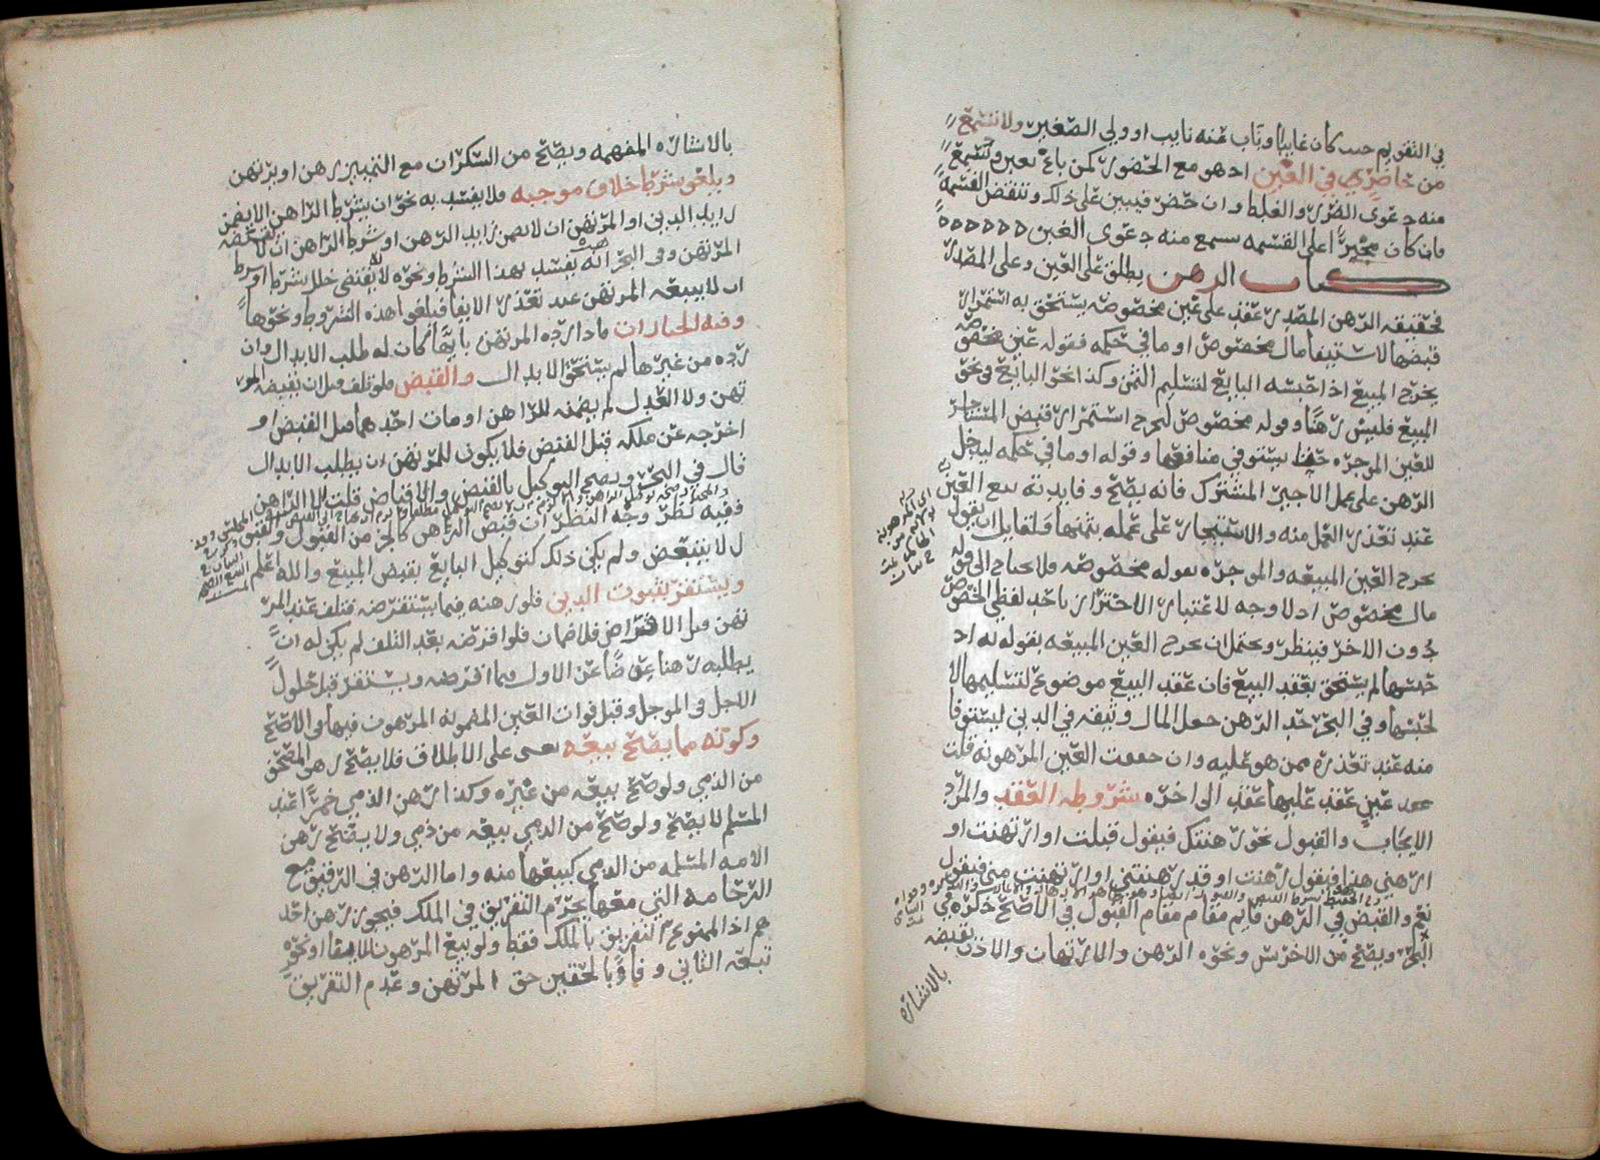 في التقويم حيث كان غايبا وناب عنه نايب او ولي الصغير ولا تسمع
من حاضر في الغبن اذ هو مع الحضور كمن باع بغبن وتسمع
منه دعوى الضرر والغلط وان حضر فيبين على ذلك وتنقض القسمة
فان كان مجبرا على القسمه سمع منه دعوى الغبن
كتاب الرهن يطلق على العين وعلى المصدر
فحقيقه الرهن المصدر عقد على عين مخصوصه يستحق به استمرار
قبضها لاستيفا مال مخصوص او ما في حكمه فقوله عين مخصوصه
يخرج المبيع اذا حبسه البايع لتسليم الثمن وكذا نحو البايع في نحو
المبيع فليس رهنا وقوله مخصوص ليخرج استمرار قبض المستاجر
للعين الموجره حتى يستوفي منافعها وقوله او ما في حكمه ليدخل
الرهن على عمل الاجير المشترك فانه يصح وفايدته بيع العين
عند تعذر العمل منه والاستيجار على عمله بثمنها ولقايل ان يقول
يخرج العين المبيعه والموجره بقوله مخصوصه فلا يحتاج الى قوله
مال مخصوص اذ لا وجه لاعتبار الاحتراز باحد لفظي المخصوص
دون الاخر فينظر ويحتمل ان يخرج العين المبيعه بقوله به اذ
حبسها لم يستحق بعقد البيع فان عقد البيع موضوع لتسليمها لا
لحبسها وفي البحر حد الرهن جعل المال وثيقه في الدين ليستوفا
منه عند تعذره ممن هو عليه وان جمعت العين المرهونه قلت
عقد على عين عقد عليها عقد الى اخره شروطه العقد والمراد
الايجاب والقبول نحو رهنتك فيقول قبلت او ارتهنت او
ارهني هذا فيقول رهنت او قد رهنتني او ارتهنت مني فيقول
نعم والقبض في الرهن قايم مقام مقام القبول في الاصح ذكره في
البحر ويصح من الاخرس ونحوه الرهن والارتهان والاذن بقبضه
بالاشاره
بالاشاره المفهمه ويصح من السكران مع التمييز رهن او يرتهن
ويلغو شرط خلاف موجبه فلا يفسد به نحو ان يشرط الراهن الا يضمن
زايد الدين او المرتهن ان لا يضمن زايد الرهن او شرط الراهن ان لا يقبضه
المرتهن وفي البحر انه يفسد بهذا الشرط ونحوه لانه يقتضي خلل شرط او شرط
ان لا يبيعه المرتهن عند تعذر الايفا فيلغو هذه الشروط ونحوها
وفيه الخيارات فاذا رده المرتهن بايها كان له طلب الابدال وان
رده من غيرها لم يستحق الابدال والقبض فلو تلف قبل ان يقبضه المر
تهن ولا العدل لم يضمنه للراهن او مات احدهما قبل القبض او
اخرجه عن ملكه قبل القبض فلا يكون للمرتهن ان يطلب الابدال
قال في البحر ويصح التوكيل بالقبض والاقباض قلت اما الراهن
ففيه نظر وجه النظر ان قبض الراهن كالجزء من القبول والعقود
ل لا يتبعض ولم يكن ذلك كتوكيل البايع بقبض المبيع والله اعلم
ويستقر بثبوت الدين فلو رهنه فيما يستقرضه فتلف عند المر
تهن قبل الاقتراض فلا ضمان فلو اقرضه بعد التلف لم يكن له ان
يطلبه رهنا عوضا عن الاول فيما اقرضه ويستقر قبل حلول
الاجل في الموجل وقبل فوات العين المضمونه المرهون فيها في الاصح
وكونه مما يصح بيعه يعني على الاطلاق فلا يصح رهن المصحف
من الذمي ولو صح بيعه من غيره وكذا رهن الذمي خمرا عند
المسلم لا يصح ولو صح من الذمي بيعه من ذمي ولا يصح رهن
الامه المسلمه من الذمي كبيعها منه واما الرهن في الرقيق مع
الرحامه التي معها يحرم التفريق في الملك فيجوز رهن احد
هم اذ الممنوع التفريق بالملك فقط ولو بيع المرهون للايفا او نحوه
تبعه الثاني وفاء بالحقين حق المرتهن وعدم التفريق